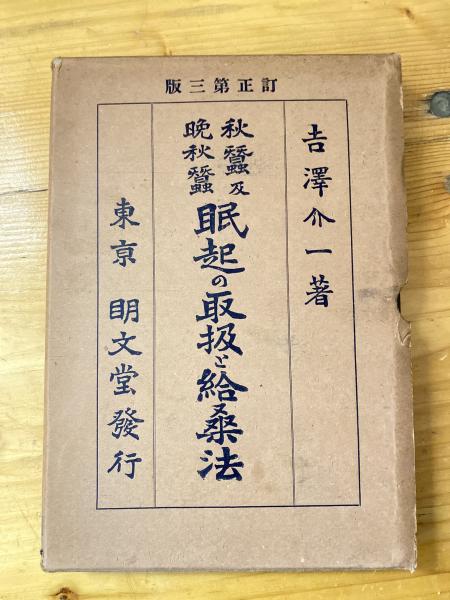 訂正第三版
吉澤介一著
秋蠶及
晩秋蠶
眠起の取扱と給桑法
東京 明文堂發行